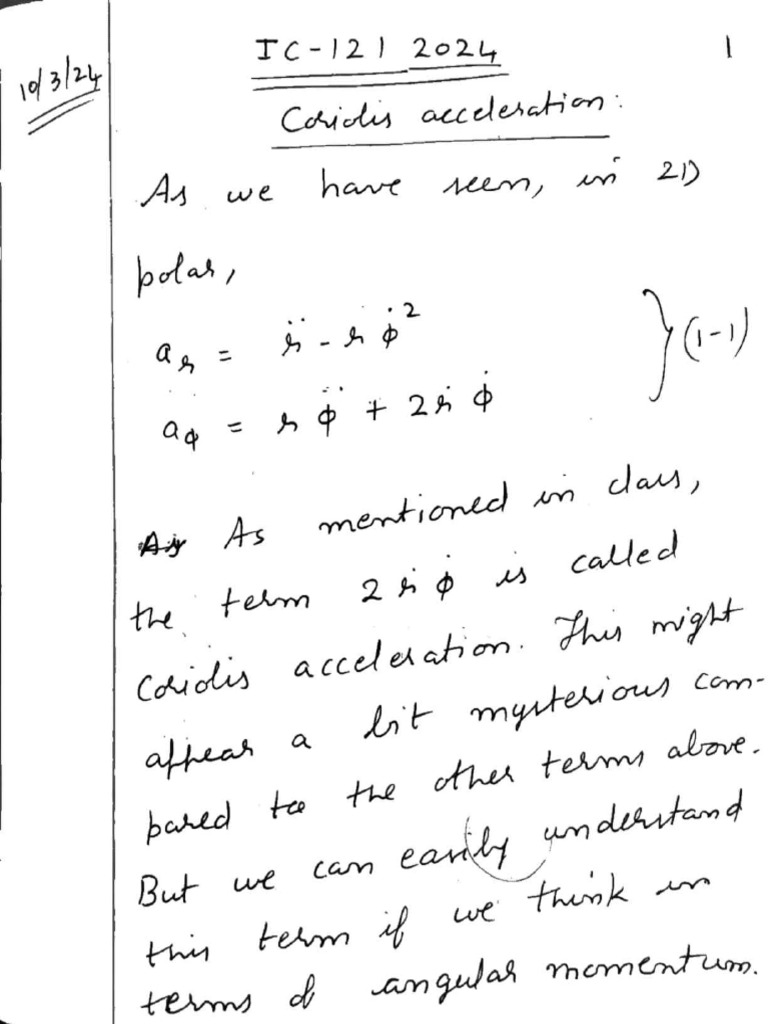 IC-121 2024
1
10/3/24
Coriolis acceleration:
As we have seen, in 2D
polar,
a_r = r̈ - r φ̇²
} (1-1)
a_φ = r φ̈ + 2ṙ φ̇
As mentioned in class,
the term 2ṙ φ̇ is called
Coriolis acceleration. This might
appear a bit mysterious com-
pared to the other terms above.
But we can easily understand
this term if we think in
terms of angular momentum.